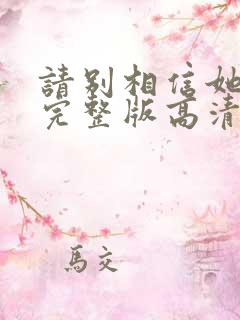 請別相信她
完整版高清
馬交